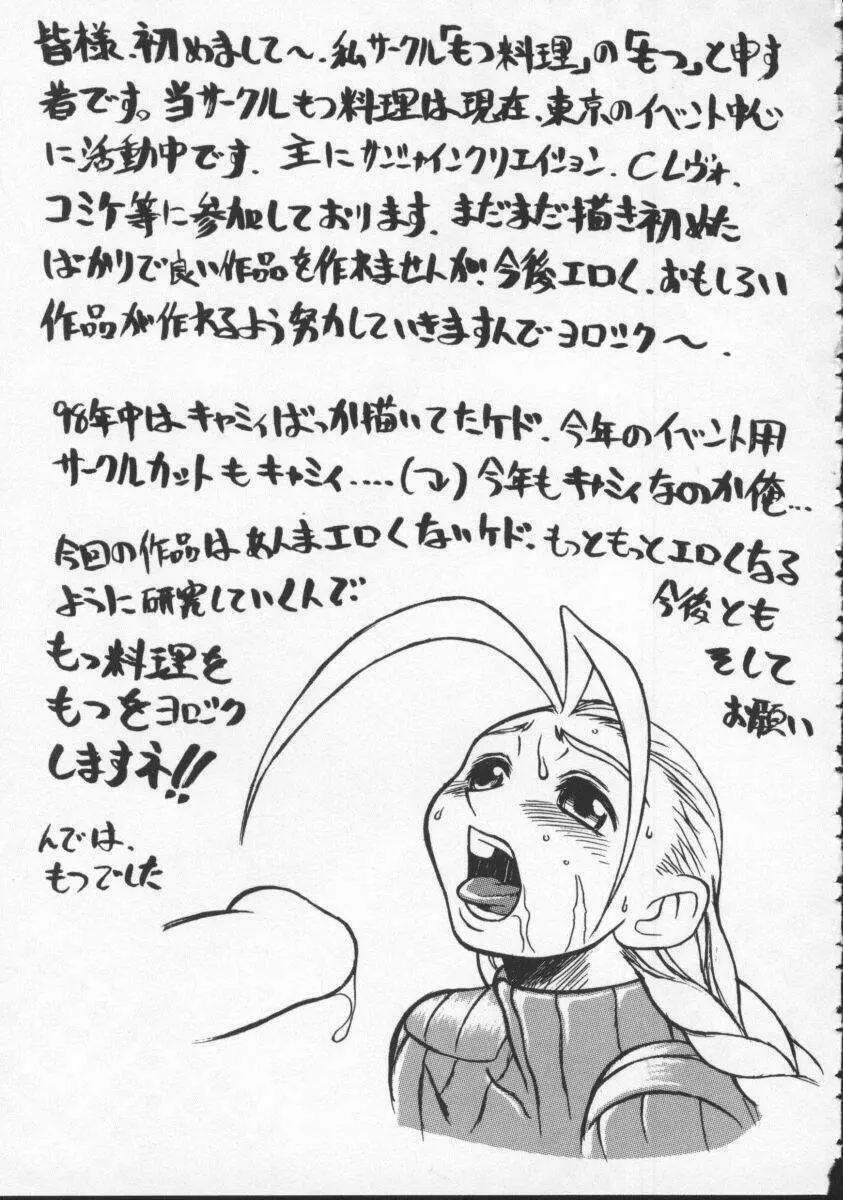 皆様、初めまして〜、私サークル「もつ料理」の「もつ」と申す
者です。当サークルもつ料理は現在、東京のイベント中心
に活動中です。主にサンシャインクリエイション、CLヴォ、
コミケ等に参加しております。まだまだ描き初めた
ばかりで良い作品を作れませんが、今後エロく、おもしろい
作品が作れるよう努力していきますんでヨロシク〜。
98年中はキャミィばっか描いてたケド、今年のイベント用
サークルカットもキャミィ.....(つ)今年もキャミィなのか俺...
今回の作品はあんまエロくないケド、もっともっとエロくなる
ように研究していくんで
今後とも
そして
お願い
もつ料理を
もつをヨロシク
しますネ!!
んでは、
もつでした